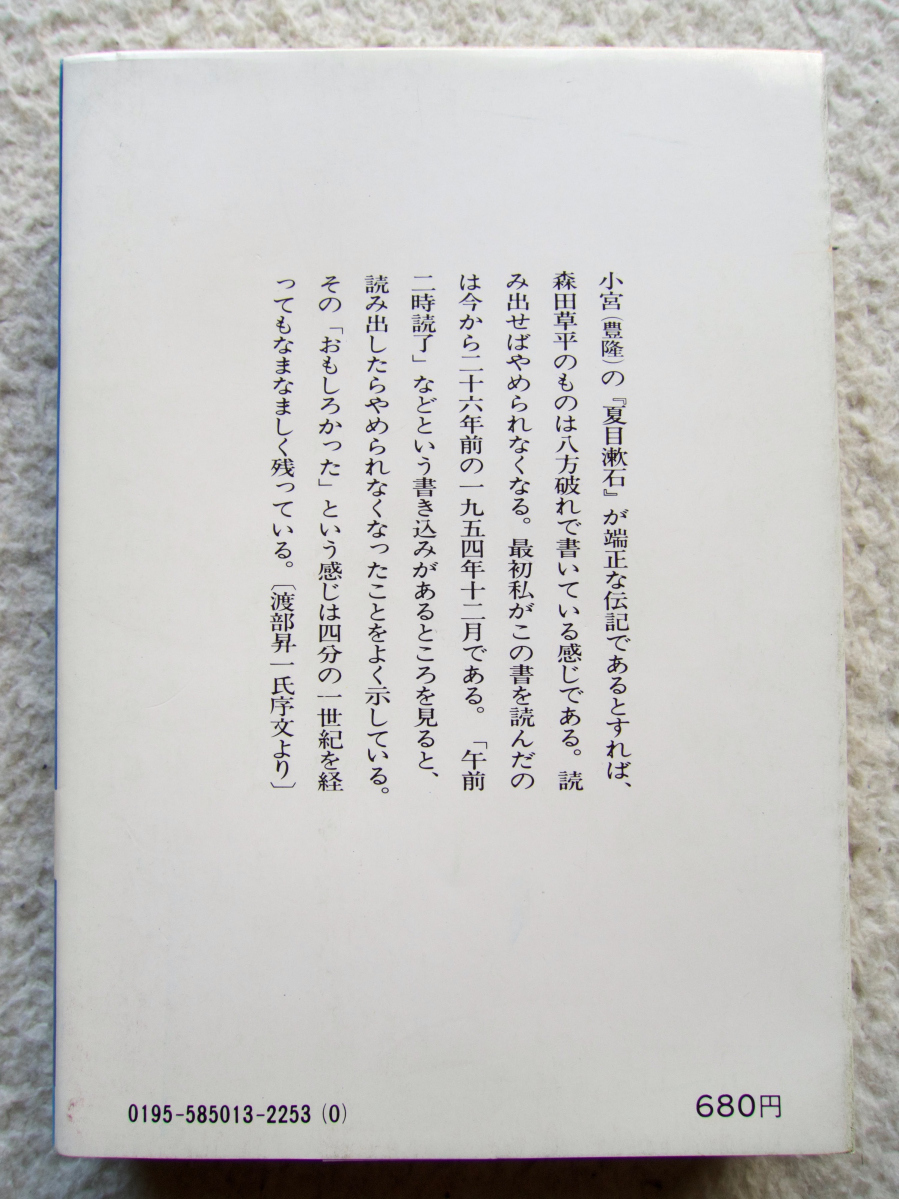 小宮(豊隆)の『夏目漱石』が端正な伝記であるとすれば、
森田草平のものは八方破れで書いている感じである。読
み出せばやめられなくなる。最初私がこの書を読んだの
は今から二十六年前の一九五四年十二月である。「午前
二時読了」などという書き込みがあるところを見ると、
読み出したらやめられなくなったことをよく示している。
その「おもしろかった」という感じは四分の一世紀を経
ってもなまなましく残っている。〔渡部昇一氏序文より〕
0195-585013-2253(0)
680円